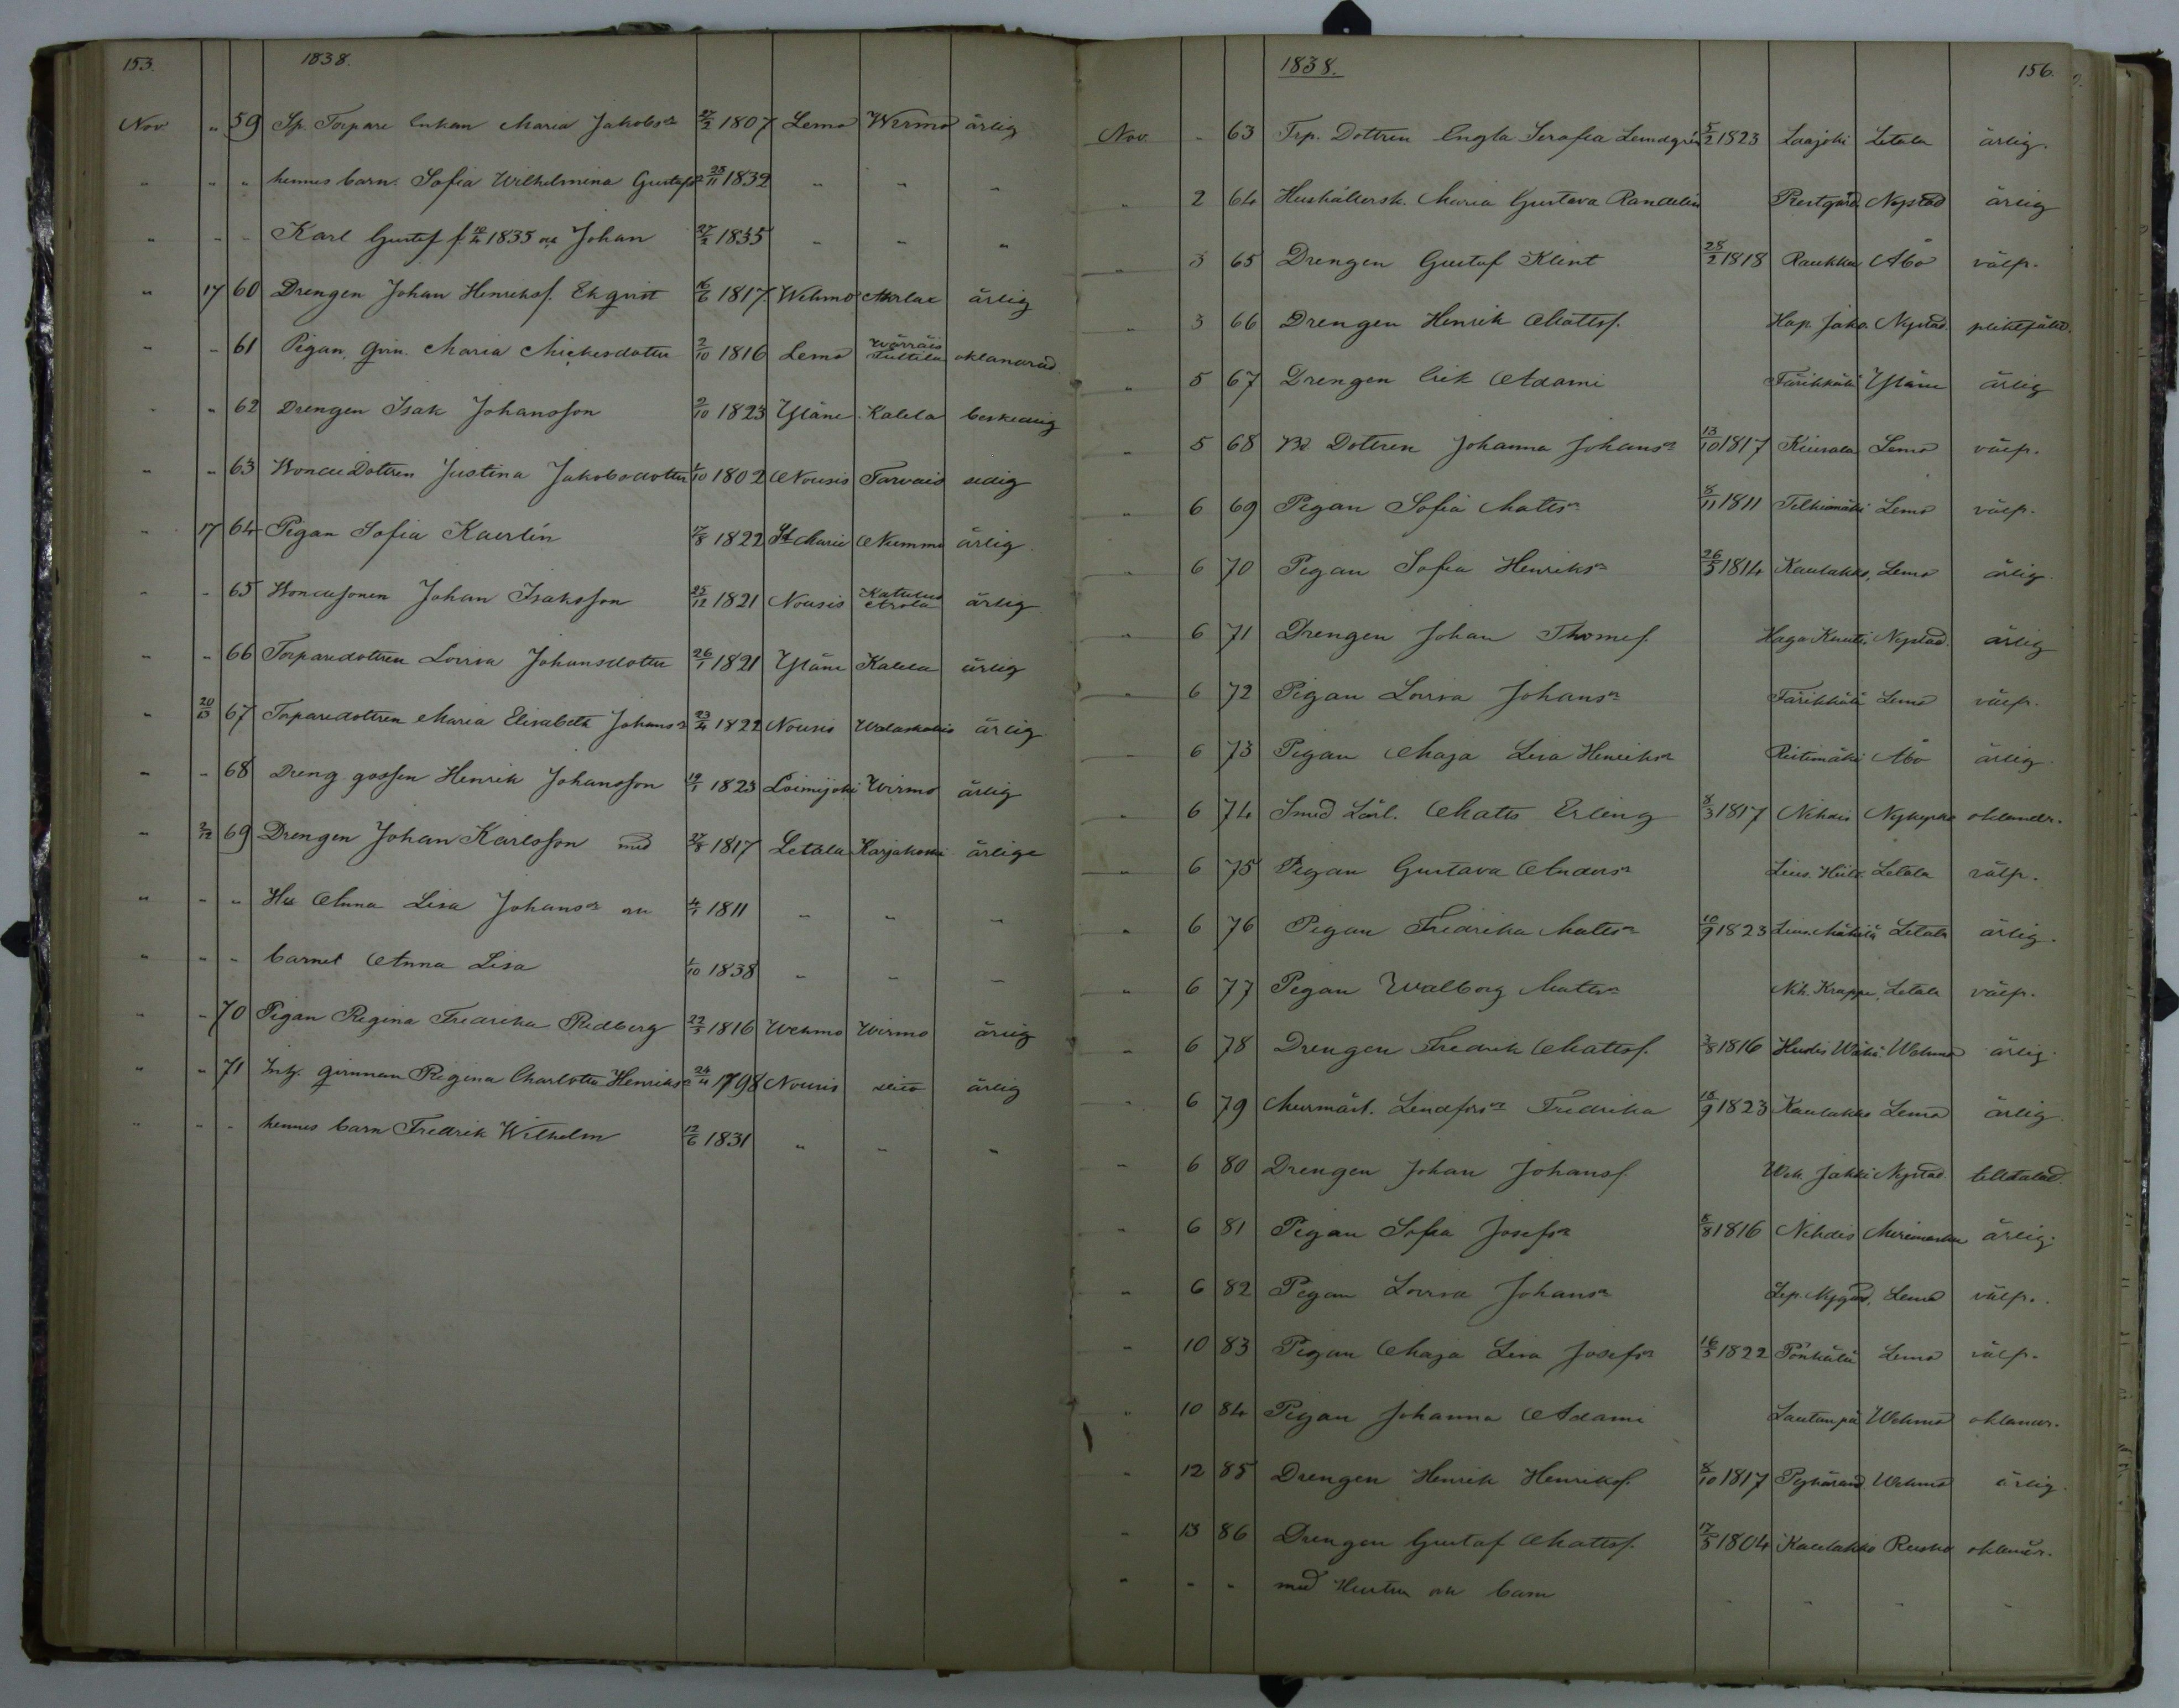 153. 1838.
Nov. " 59 Sp. Torpare Enkan Maria Jakobsdr 27/2 1807 Lemo Wirmo ärlig
" " " hennes barn. Sofia Wilhelmina Gustafsdr 25/11 1832 " " "
" " " Karl Gustaf f. 1835 och Johan 27/2 1835 " " "
" 17 60 Drengen Johan Henriksf. Ekqvist 16/6 1817 Wehmo ärlig
" " 61 Pigan, Qvin. Maria Mickesdotter 2/10 1816 Lemo oklandrad
" " 62 Drengen Isak Johansson 2/10 1823 Yläne Kalela beskedlig
" " 63 Bonde Dottren Justina Jakobsdotter 1/10 1802 Nousis Tarvais sedig
" 17 64 Pigan Sofia Kaerlén 17/8 1822 St Marie Nummi ärlig
" " 65 Bondesonen Johan Isaksson 25/12 1821 Nousis ärlig
" " 66 Torparedottren Lovisa Johansdotter 26/1 1821 Yläne Kalela ärlig
" 67 Torparedottren Maria Elisabeth Johansdr 23/4 1822 Nousis ärlig
" " 68 Dreng gossen Henrik Johansson 19/1 1823 Loimijoki Wirmo ärlig
" 2/12 69 Drengen Johan Karlsson med 27/8 1817 Letala Karjakoski ärlige
" " " Hu Anna Lisa Johansdr och 4/1 1811 " " "
" " " barnet Anna Lisa 1/10 1838 " " "
" " 70 Pigan Regina Fredrika Ridberg 22/3 1816 Wehmo Wirmo ärlig
" " 71 Inh. qvinnan Regina Charlotta Henriksdr 24/4 1798 Nousis dito ärlig
" " " hennes barn Fredrik Wilhelm 12/6 1831 " " "
1838. 156.
Nov. " 63 Trp. Dottren Engla Serafia Lemdgrén 5/2 1823 Laajoki Letala ärlig.
" 2 64 Hushållersk. Maria Gustava Randelin Prestgård Nystad ärlig
" 3 65 Drengen Gustaf Klint 28/2 1818 Raukka Åbo välfr.
" 3 66 Drengen Henrik Mattsf. Hap. Jako. Nystad.
" 5 67 Drengen Erik Adami Färikkälä Yläne ärlig
" 5 68 Bd. Dottren Johanna Johansdr 13/10 1817 Kiusala Lemo välfr.
" 6 69 Pigan Sofia Mattsdr 8/11 1811 Telkiömäki Lemo välfr.
" 6 70 Pigan Sofia Henriksdr 26/3 1814 Kaulakko, Lemo ärlig
" 6 71 Drengen Johan Thomsf. Haga Kuusti, Nystad. ärlig
" 6 72 Pigan Lovisa Johansdr Färikkälä Lemo välfr.
" 6 73 Pigan Maja Lisa Henriksdr Ristimäki Åbo ärlig
" 6 74 Smed Lärl. Matts Erling 8/3 1817 Nihdis Nykyrko oklandr.
" 6 75 Pigan Gustava Andersdr Letala välfr.
" 6 76 Pigan Fredrika Mattsdr 10/9 1823 Letala ärlig.
" 6 77 Pigan Walborg Mattsdr Nih. Krappe, Letala välfr.
" 6 78 Drengen Fredrik Mattsf. 3/8 1816 Wehmo ärlig
" 6 79 Murmäst. Lindforsdr Fredrika 18/9 1823 Kaulakko Lemo ärlig
" 6 80 Drengen Johan Johansf. Weh. Jakki Nystad tilltalad.
" 6 81 Pigan Sofia Josefsdr 8/8 1816 Nihdis Merimasku ärlig.
" 6 82 Pigan Lovisa Johansdr Lep. Nygård, Lemo välfr.
" 10 83 Pigan Maja Lisa Josefsdr 16/3 1822 Pönkälä Lemo välfr.
" 10 84 Pigan Johanna Adami Lautanpä Wehmo oklandr.
" 12 85 Drengen Henrik Henriksf. 8/10 1817 Pyhärand Wehmo ärlig
" 13 86 Drengen Gustaf Mattsf. 17/3 1804 Kaulakko Rusko oklandr.
" " " med Hustru och barn " " "